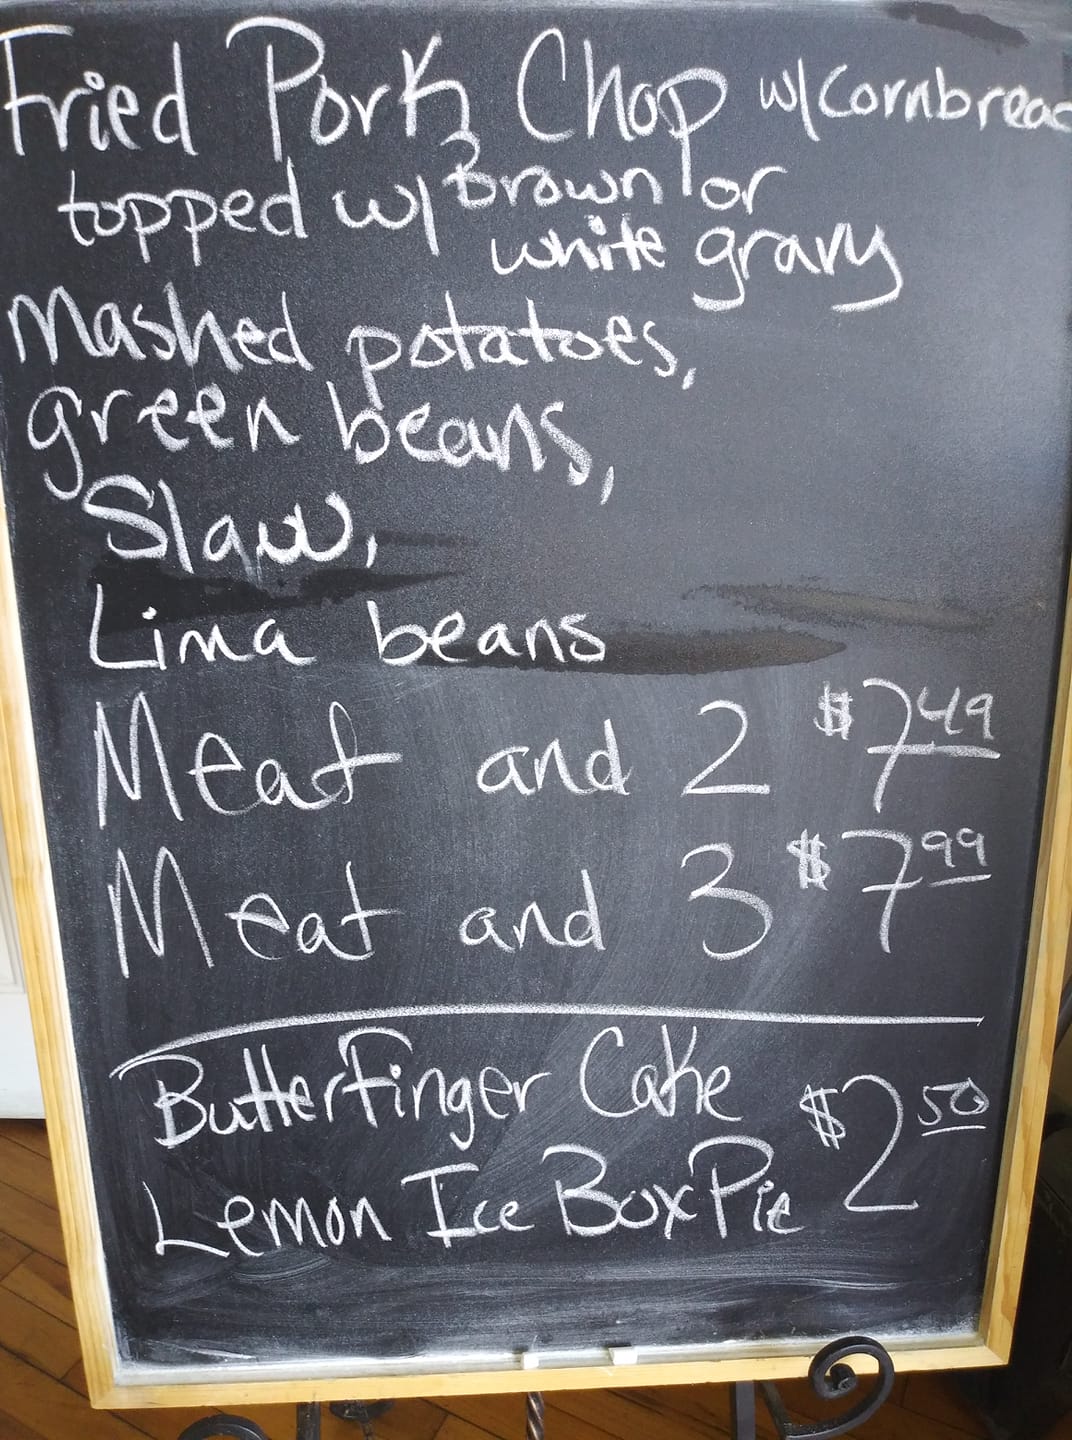 Fried Pork Chop w/Cornbread
topped w/ Brown or
white gravy
Mashed potatoes,
green beans,
Slaw,
Lima beans
Meat and 2 $7.49
Meat and 3 $7.99
Butterfinger Cake
$2.50
Lemon Ice Box Pie